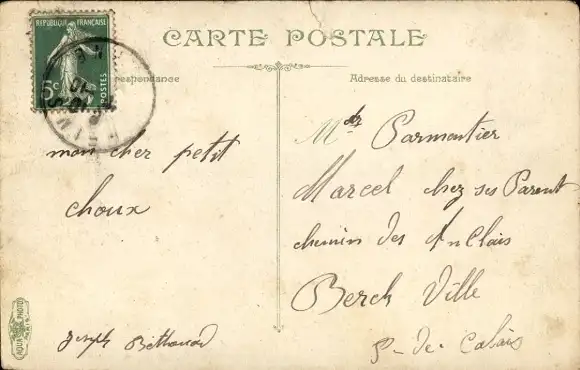 RÉPUBLIQUE FRANÇAISE
5c POSTES
CARTE POSTALE
respondance
Adresse du destinataire
mon cher petit
choux
Joseph
Parmentier
Marcel chez ses Parent
chemin des Anclais
Berck Ville
P- de- Calais
AQUA PHOTO
PARIS